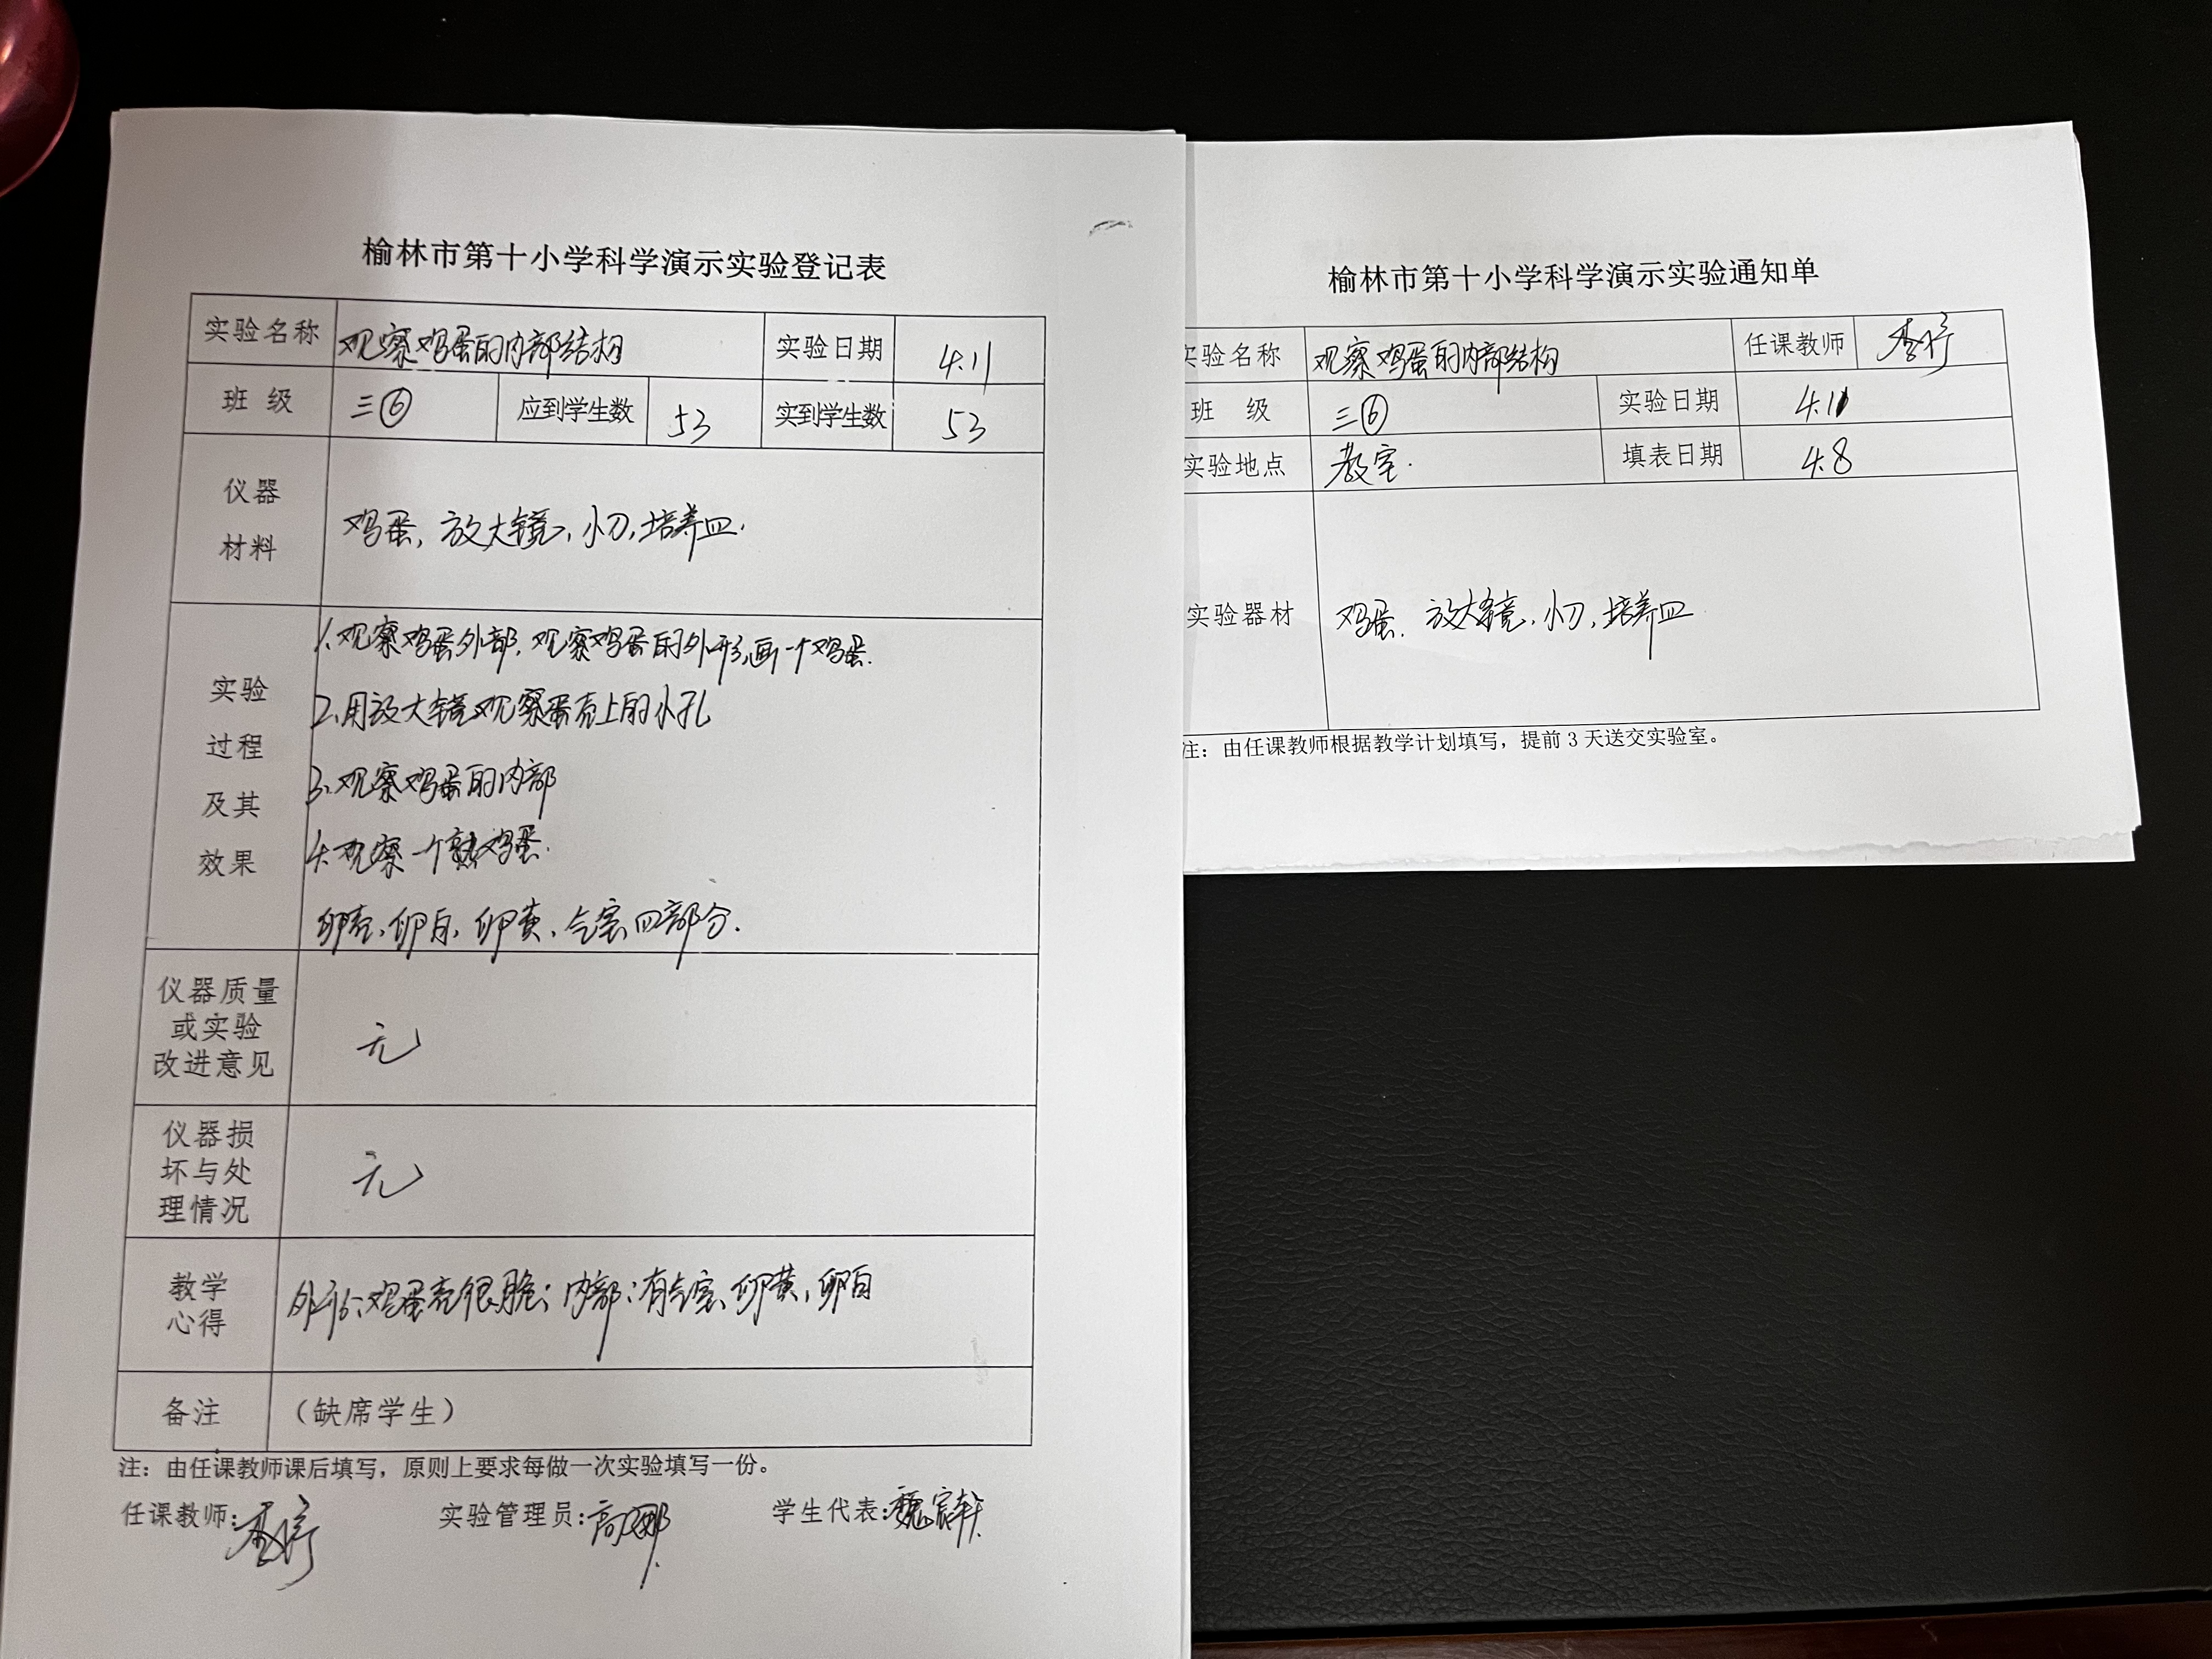 榆林市第十小学科学演示实验登记表
实验名称 观察鸡蛋的内部结构 实验日期 4.11
班 级 三⑥ 应到学生数 53 实到学生数 53
仪器
材料
鸡蛋, 放大镜, 小刀, 培养皿.
实验
过程
及其
效果
1.观察鸡蛋外部, 观察鸡蛋的外形,画一个鸡蛋.
2.用放大镜观察蛋壳上的小孔
3.观察鸡蛋的内部
4.观察一个熟鸡蛋.
卵壳、卵白、卵黄、气室四部分.
仪器质量
或实验
改进意见
无
仪器损
坏与处
理情况
无
教学
心得
外部:鸡蛋壳很脆; 内部:有气室、卵黄,卵白
备注 （缺席学生）
注：由任课教师课后填写，原则上要求每做一次实验填写一份。
任课教师: 实验管理员:高娜 学生代表:魏宸轩
榆林市第十小学科学演示实验通知单
实验名称 观察鸡蛋的内部结构 任课教师
班 级 三⑥ 实验日期 4.11
实验地点 教室. 填表日期 4.8
实验器材 鸡蛋. 放大镜, 小刀, 培养皿
注：由任课教师根据教学计划填写，提前 3 天送交实验室。